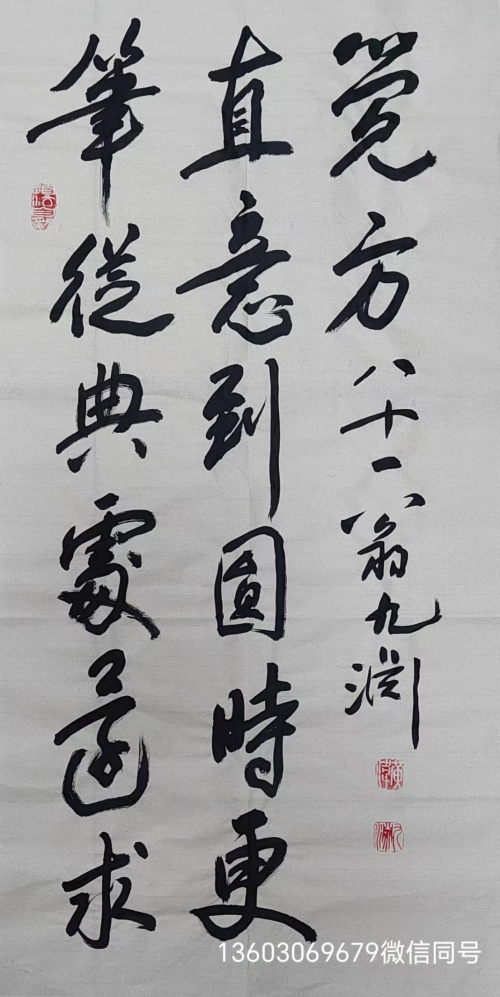 筆從典處還求
直意到圓時更
覓方
八十一翁九渊
13603069679微信同号